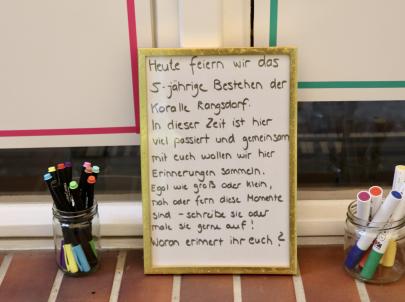 Heute feiern wir das
5-jährige Bestehen der
Koralle Rangsdorf.
In dieser Zeit ist hier
viel passiert und gemeinsam
mit euch wollen wir hier
Erinnerungen sammeln.
Egal wie groß oder klein,
nah oder fern diese Momente
sind - schreibe sie oder
male sie gerne auf!
Woran erinnert ihr euch?